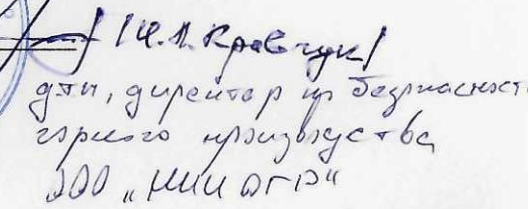 /И.Л. Кравчук/
дтн, директор по безопасност
горного производства
ООО "НИИОГР"